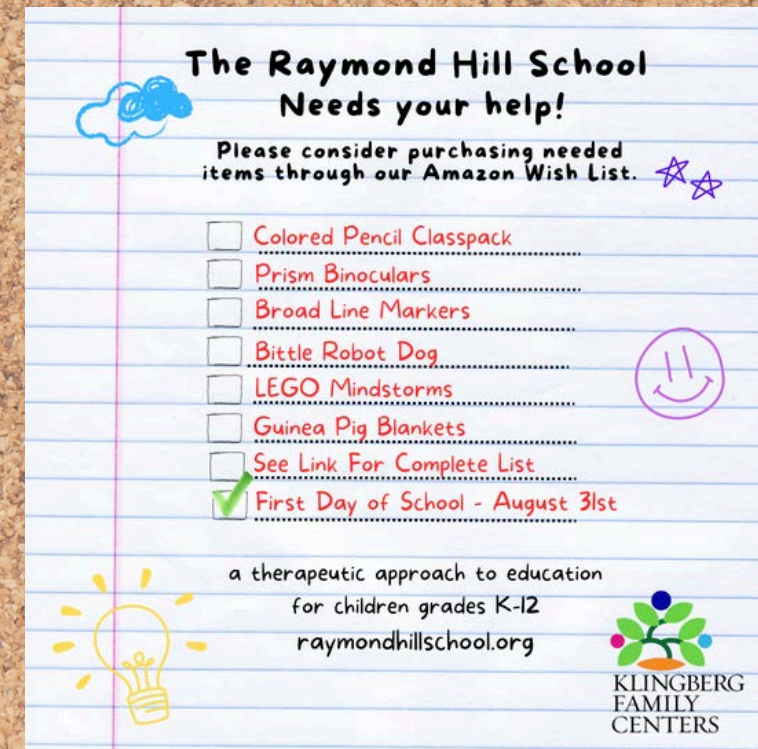 The Raymond Hill School
Needs your help!
Please consider purchasing needed
items through our Amazon Wish List.
Colored Pencil Classpack
Prism Binoculars
Broad Line Markers
Bittle Robot Dog
LEGO Mindstorms
Guinea Pig Blankets
See Link For Complete List
First Day of School - August 31st
a therapeutic approach to education
for children grades K-12
raymondhillschool.org
KLINGBERG
FAMILY
CENTERS